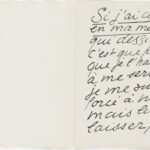 Si j'ai c
en ma me
qui dessi
c'est que
que je l'h
à me ser
je me su
forcé à n
mais le
laisser